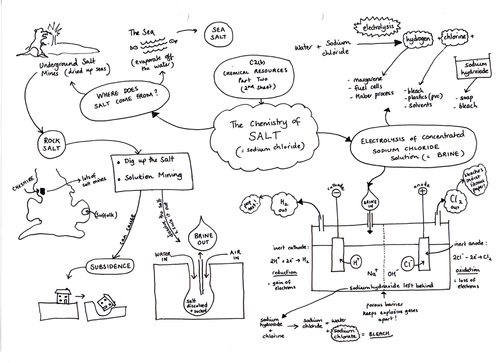 The Sea
(evaporate off
the water)
SEA
SALT
Underground Salt
Mines (dried up seas)
WHERE DOES
SALT COME FROM?
C2(b)
CHEMICAL RESOURCES
Part Two
(2nd sheet)
The Chemistry of
SALT
(= sodium chloride)
electrolysis
Water + Sodium
chloride
hydrogen
+
chlorine
+
sodium
hydroxide
- margarine
- fuel cells
- Haber process
- bleach
- plastics (pvc)
- solvents
- soap
- bleach
ELECTROLYSIS of CONCENTRATED
SODIUM CHLORIDE
Solution (= BRINE)
ROCK
SALT
• Dig up the Salt
• Solution Mining
CHESHIRE
lots of
salt mines
CAN CAUSE
SUBSIDENCE
BRINE
OUT
WATER
IN
AIR
IN
Salt
dissolved
H₂
out
cathode
BRINE
IN
anode
Cl₂
out
bleaches
litmus
paper
inert cathode:
2H⁺ + 2e⁻ → H₂
reduction
= gain of
electrons
H⁺
Na⁺
OH⁻
Cl⁻
inert anode:
2Cl⁻ - 2e⁻ → Cl₂
oxidation
= loss of
electrons
sodium hydroxide left behind
porous barrier
keeps explosive gases
apart!
sodium
hydroxide
+
chlorine
→
sodium
chloride
+ water
+ sodium
chlorate
= BLEACH